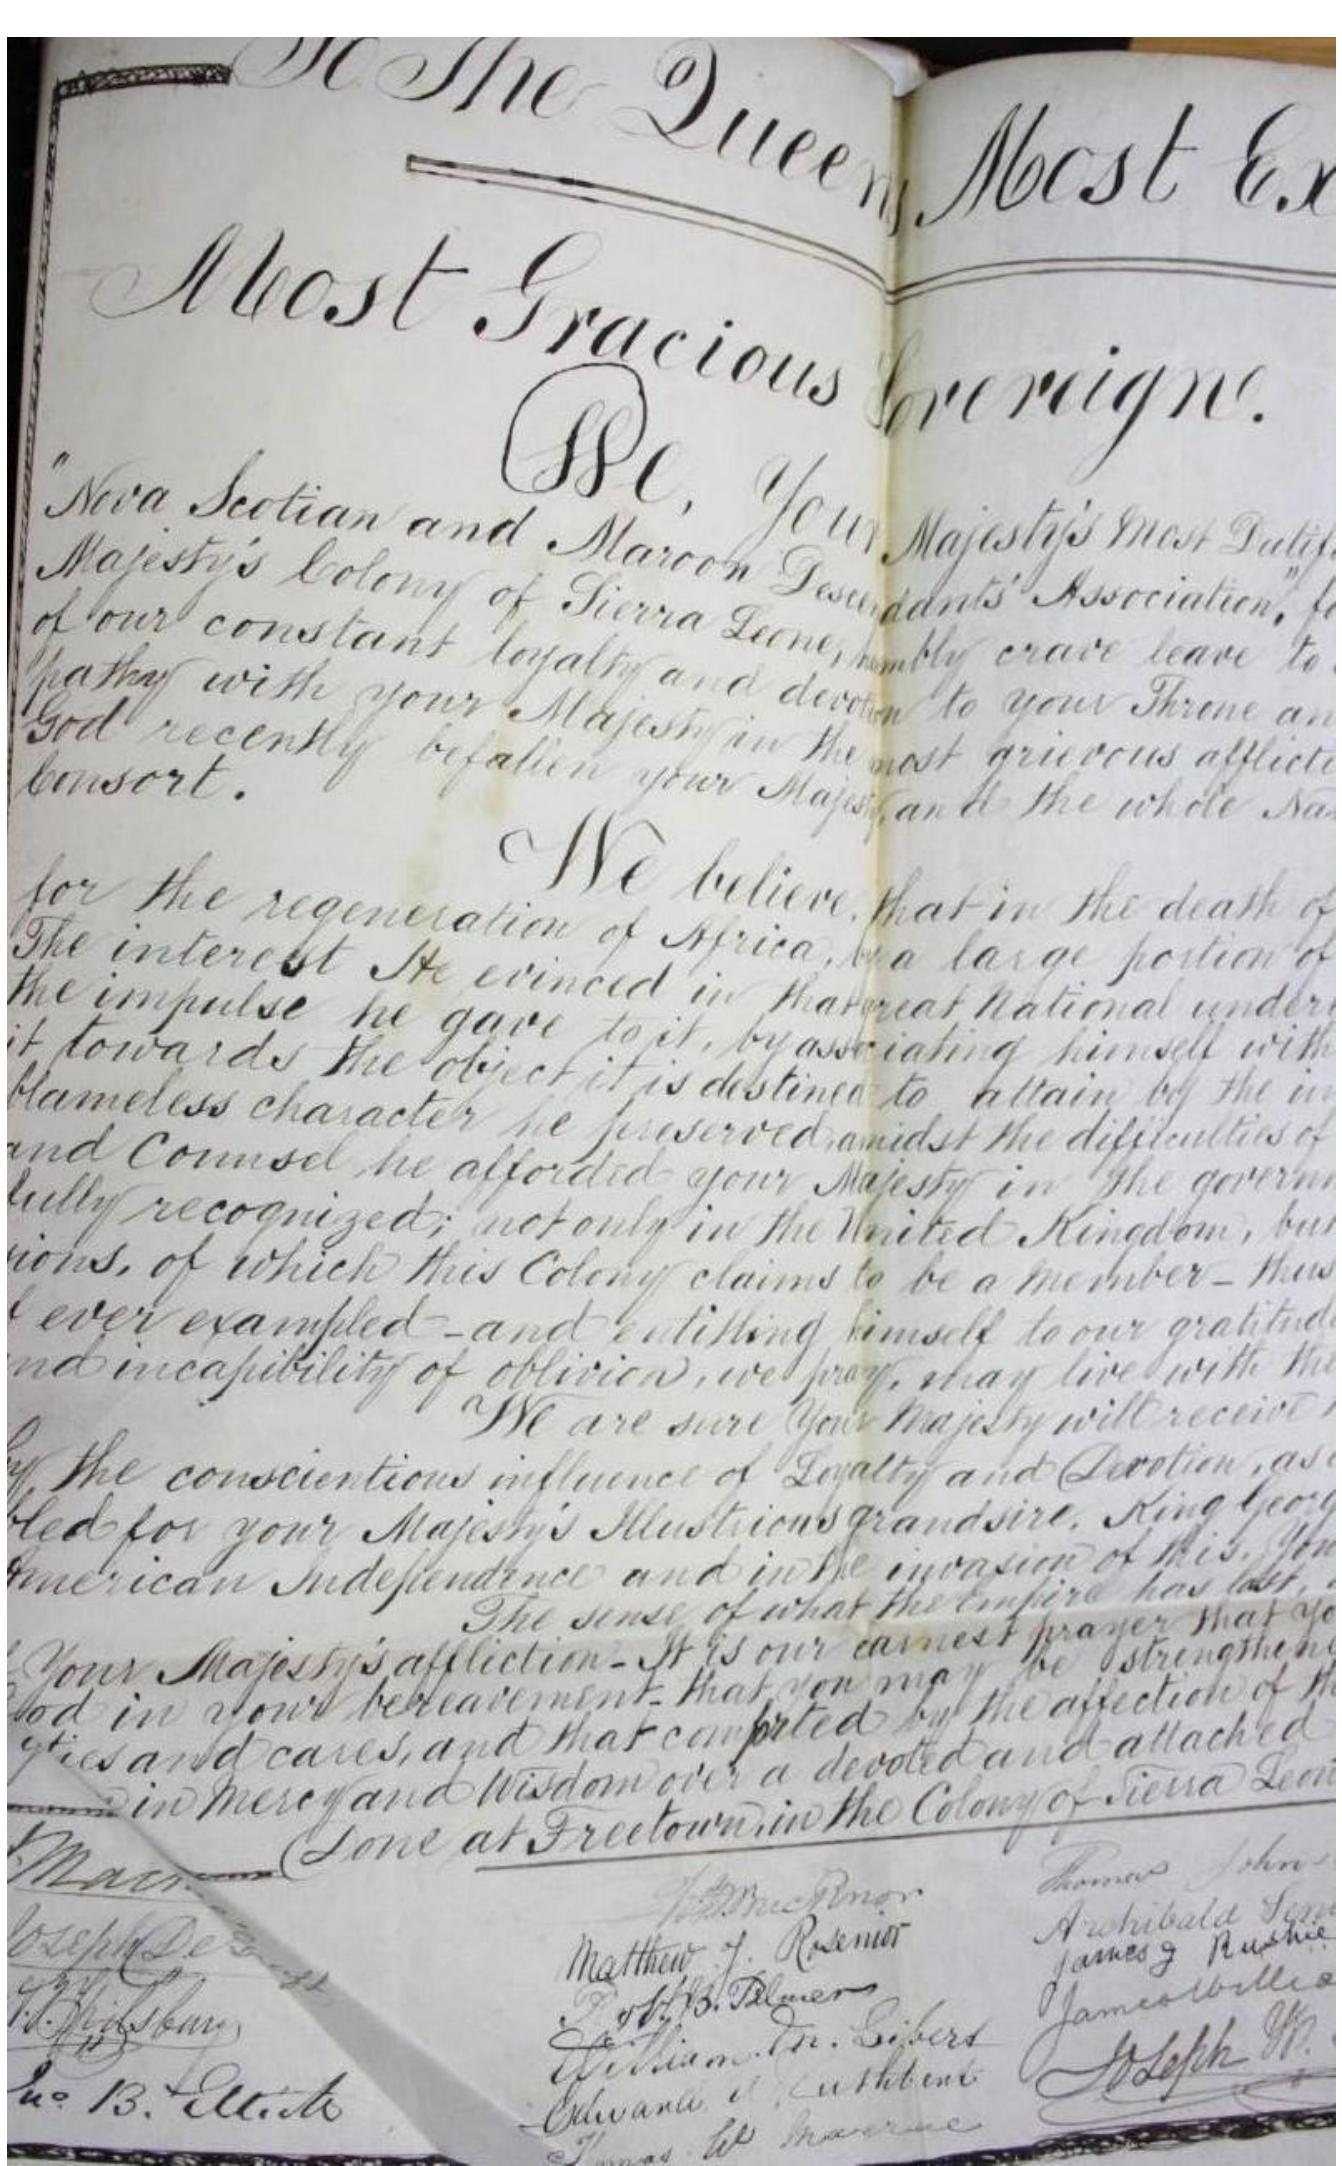 To The Queen's Most Ex
Most Gracious Sovereign.
We, Your Majesty's Most Dutif
"Nova Scotian and Maroon Descendants' Association", fo
Majesty's Colony of Sierra Leone, humbly crave leave to
of our constant loyalty and devotion to your Throne an
pathy with your Majesty in the most grievous afflicti
God recently befallen your Majesty, and the whole Na
Consort.
We believe, that in the death of
for the regeneration of Africa, by a large portion of
The interest He evinced in that great National under
the impulse he gave to it, by associating himself with
it towards the object it is destined to attain by the in
blameless character he preserved, amidst the difficulties of
and Counsel he afforded your Majesty in the governm
fully recognized; not only in the United Kingdom, but
ions, of which this Colony claims to be a member - thus
ever exampled - and entitling himself to our gratitude
nd incapibility of oblivion, we pray, may live with the
We are sure Your Majesty will receive
by the conscientious influence of Loyalty and Devotion, as
bled for your Majesty's Illustrious grandsire, King Georg
American Independence and in the invasion of this. You
The sense, of what the Empire has lost,
Your Majesty's affliction - It is our earnest prayer that Yo
God in your bereavement - that you may be strengthene
ties and cares, and that comforted by the affection of th
in Mercy and Wisdom over a devoted and attached
Done at Freetown, in the Colony of Sierra Leon
Thomas John
Joseph
Matthew J. Rosenior
Archibald
James J Rushie
B. Palmer
James Willia
William M. Gibert
Edward Cuthbert
Joseph W.
Jno B. Elliott
Thomas W